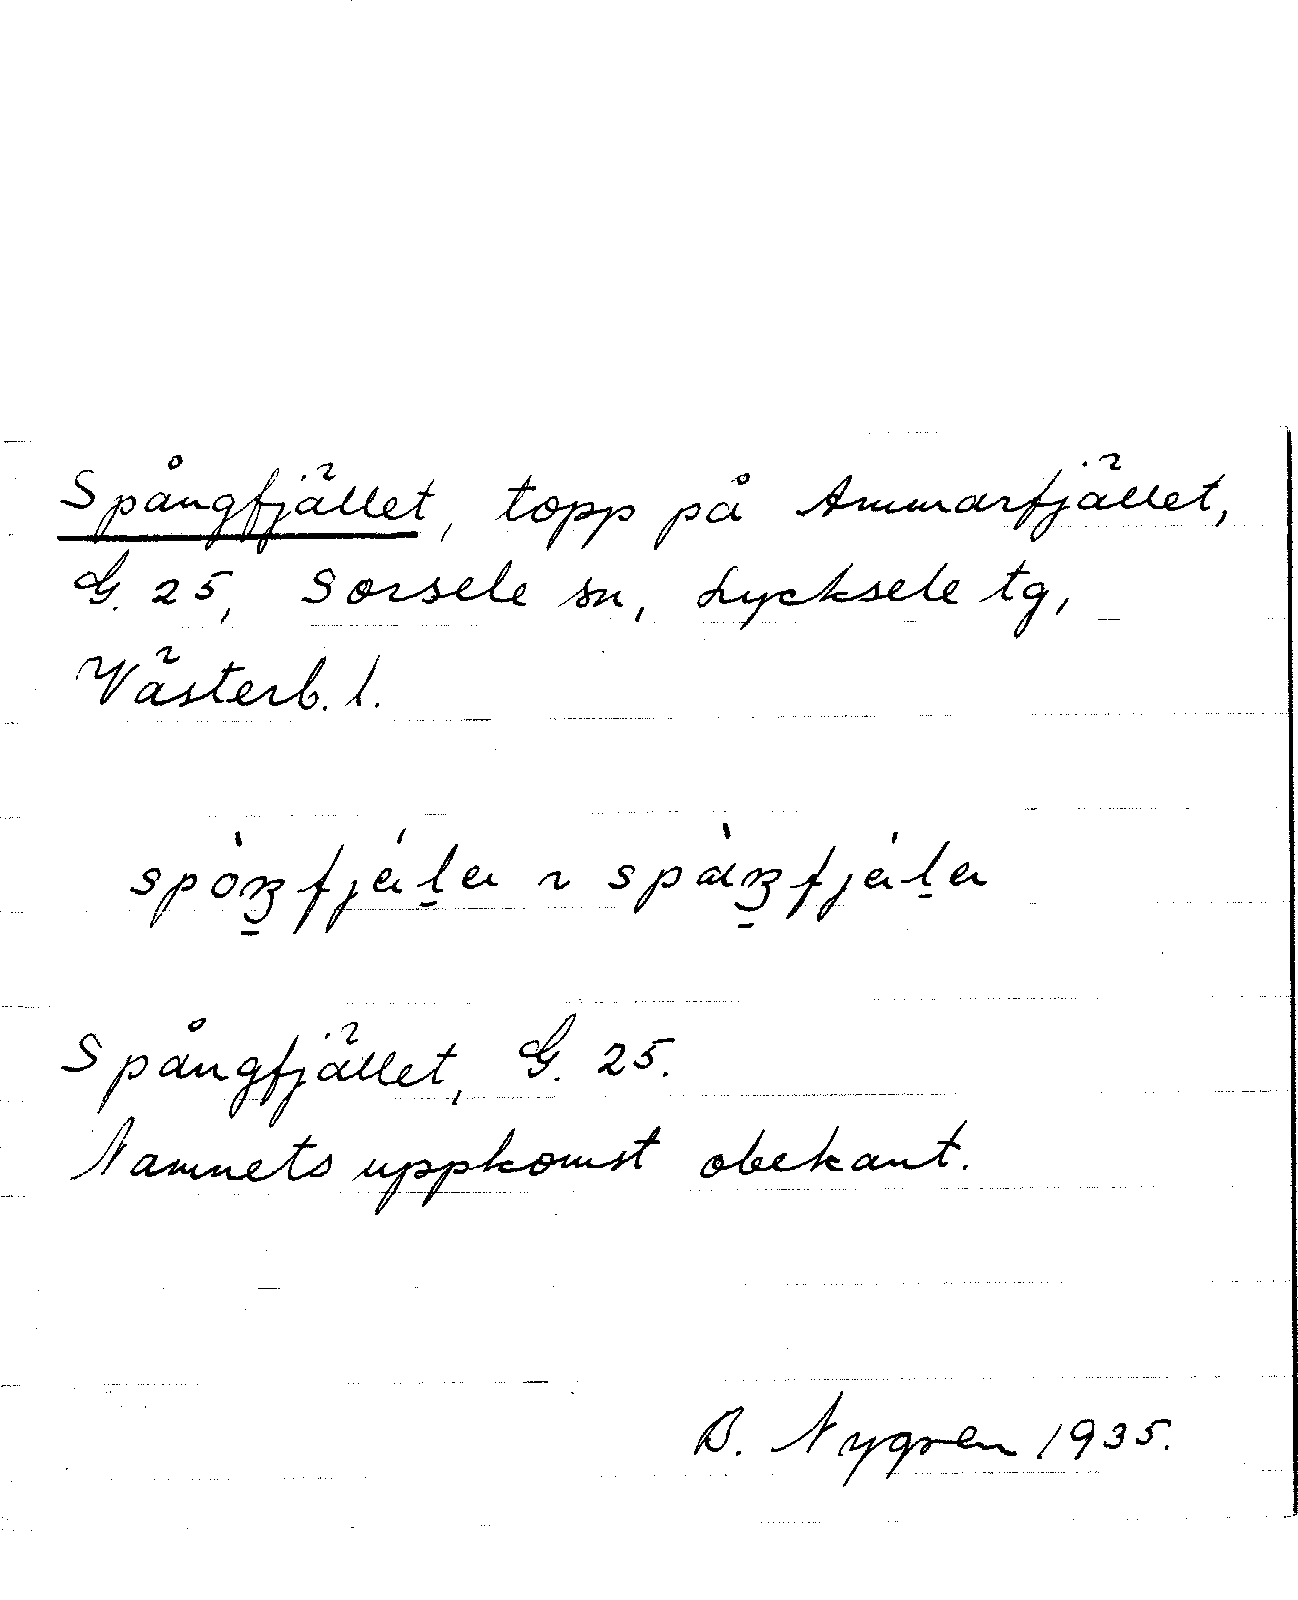 Spångfjället, topp på Ammarfjället,
G. 25, Sorsele sn, Lycksele tg,
Västerb. l.
Spångfjället, G. 25.
Namnets uppkomst obekant.
B. Nygren 1935.